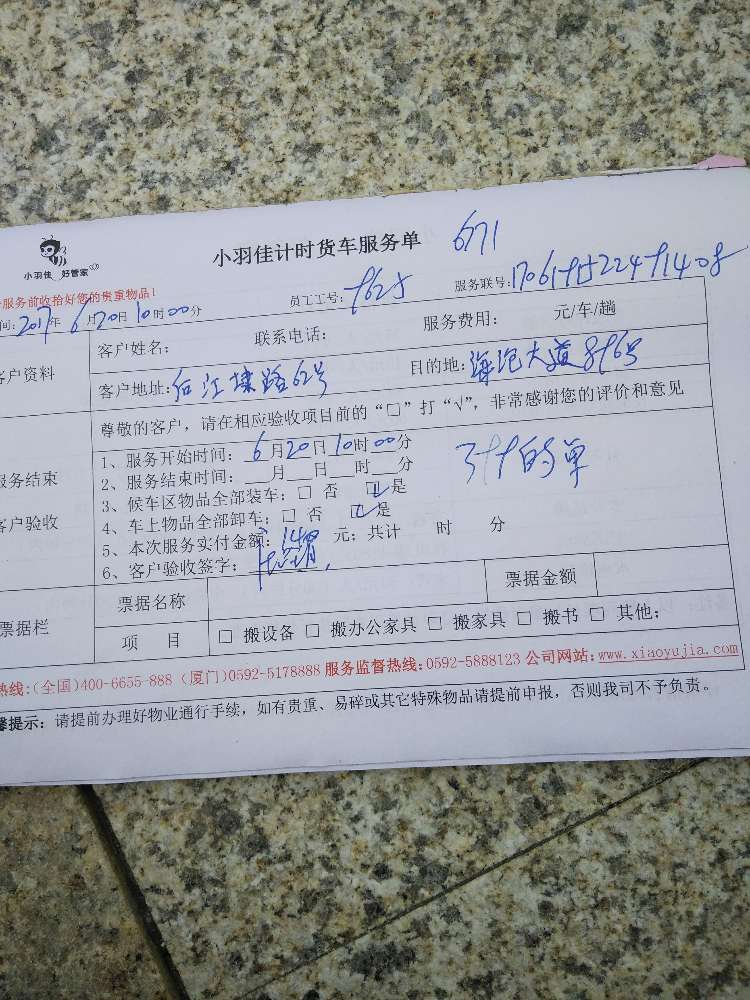 小羽佳计时货车服务单 6771
小羽佳 好管家
服务前收拾好您的贵重物品!
间: 2017年 6月20日10时00分 员工工号: 9625 服务联号:
客户资料 客户姓名: 联系电话: 服务费用: 元/车/趟
客户地址: 后江埭路62号 目的地: 海沧大道896号
尊敬的客户，请在相应验收项目前的“□”打“√”，非常感谢您的评价和意见
服务结束
客户验收
1、服务开始时间: 6月20日10时00分
2、服务结束时间:___月___日___时___分
3、候车区物品全部装车: □ 否 ☑是
4、车上物品全部卸车: □ 否 ☑是
5、本次服务实付金额: 元; 共计 时 分
6、客户验收签字:
的单
票据栏 票据名称 票据金额
项 目 □ 搬设备 □ 搬办公家具 □ 搬家具 □ 搬书 □ 其他:
热线:(全国)400-6655-888 (厦门)0592-5178888 服务监督热线:0592-5888123 公司网站: www.xiaoyujia.com
馨提示: 请提前办理好物业通行手续，如有贵重、易碎或其它特殊物品请提前申报，否则我司不予负责。